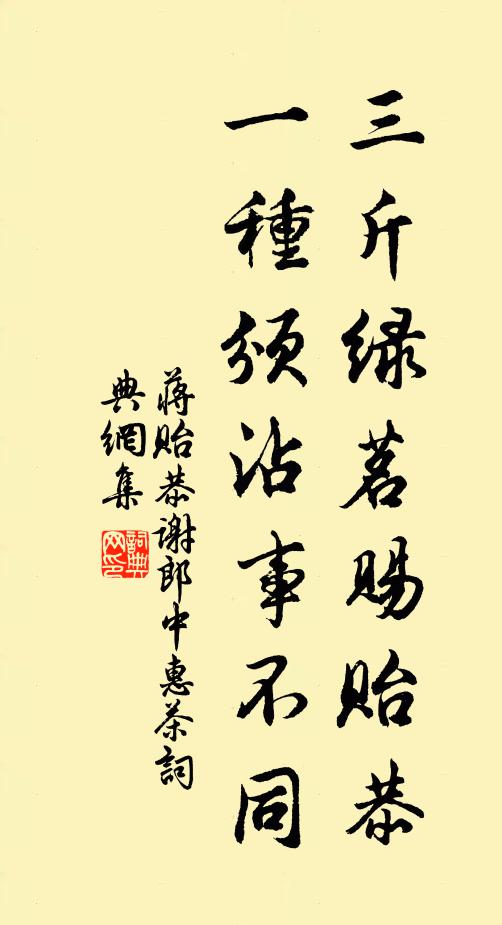 三斤綠茗賜貽恭
一種頒沾事不同
蔣貽恭謝郎中惠茶詞
典網集
詞典
网印